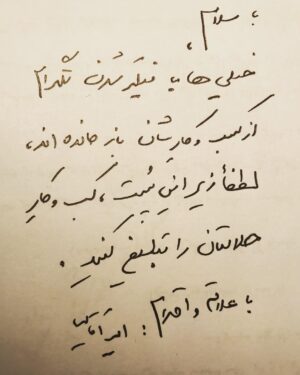 با سلام،
خیلی ها با فیلتر شدن تلگرام
از کسب و کارشان باز مانده اند،
لطفاً زیر این پست، کسب و کار
حلالتان را تبلیغ کنید.
با علاقه و احترام: